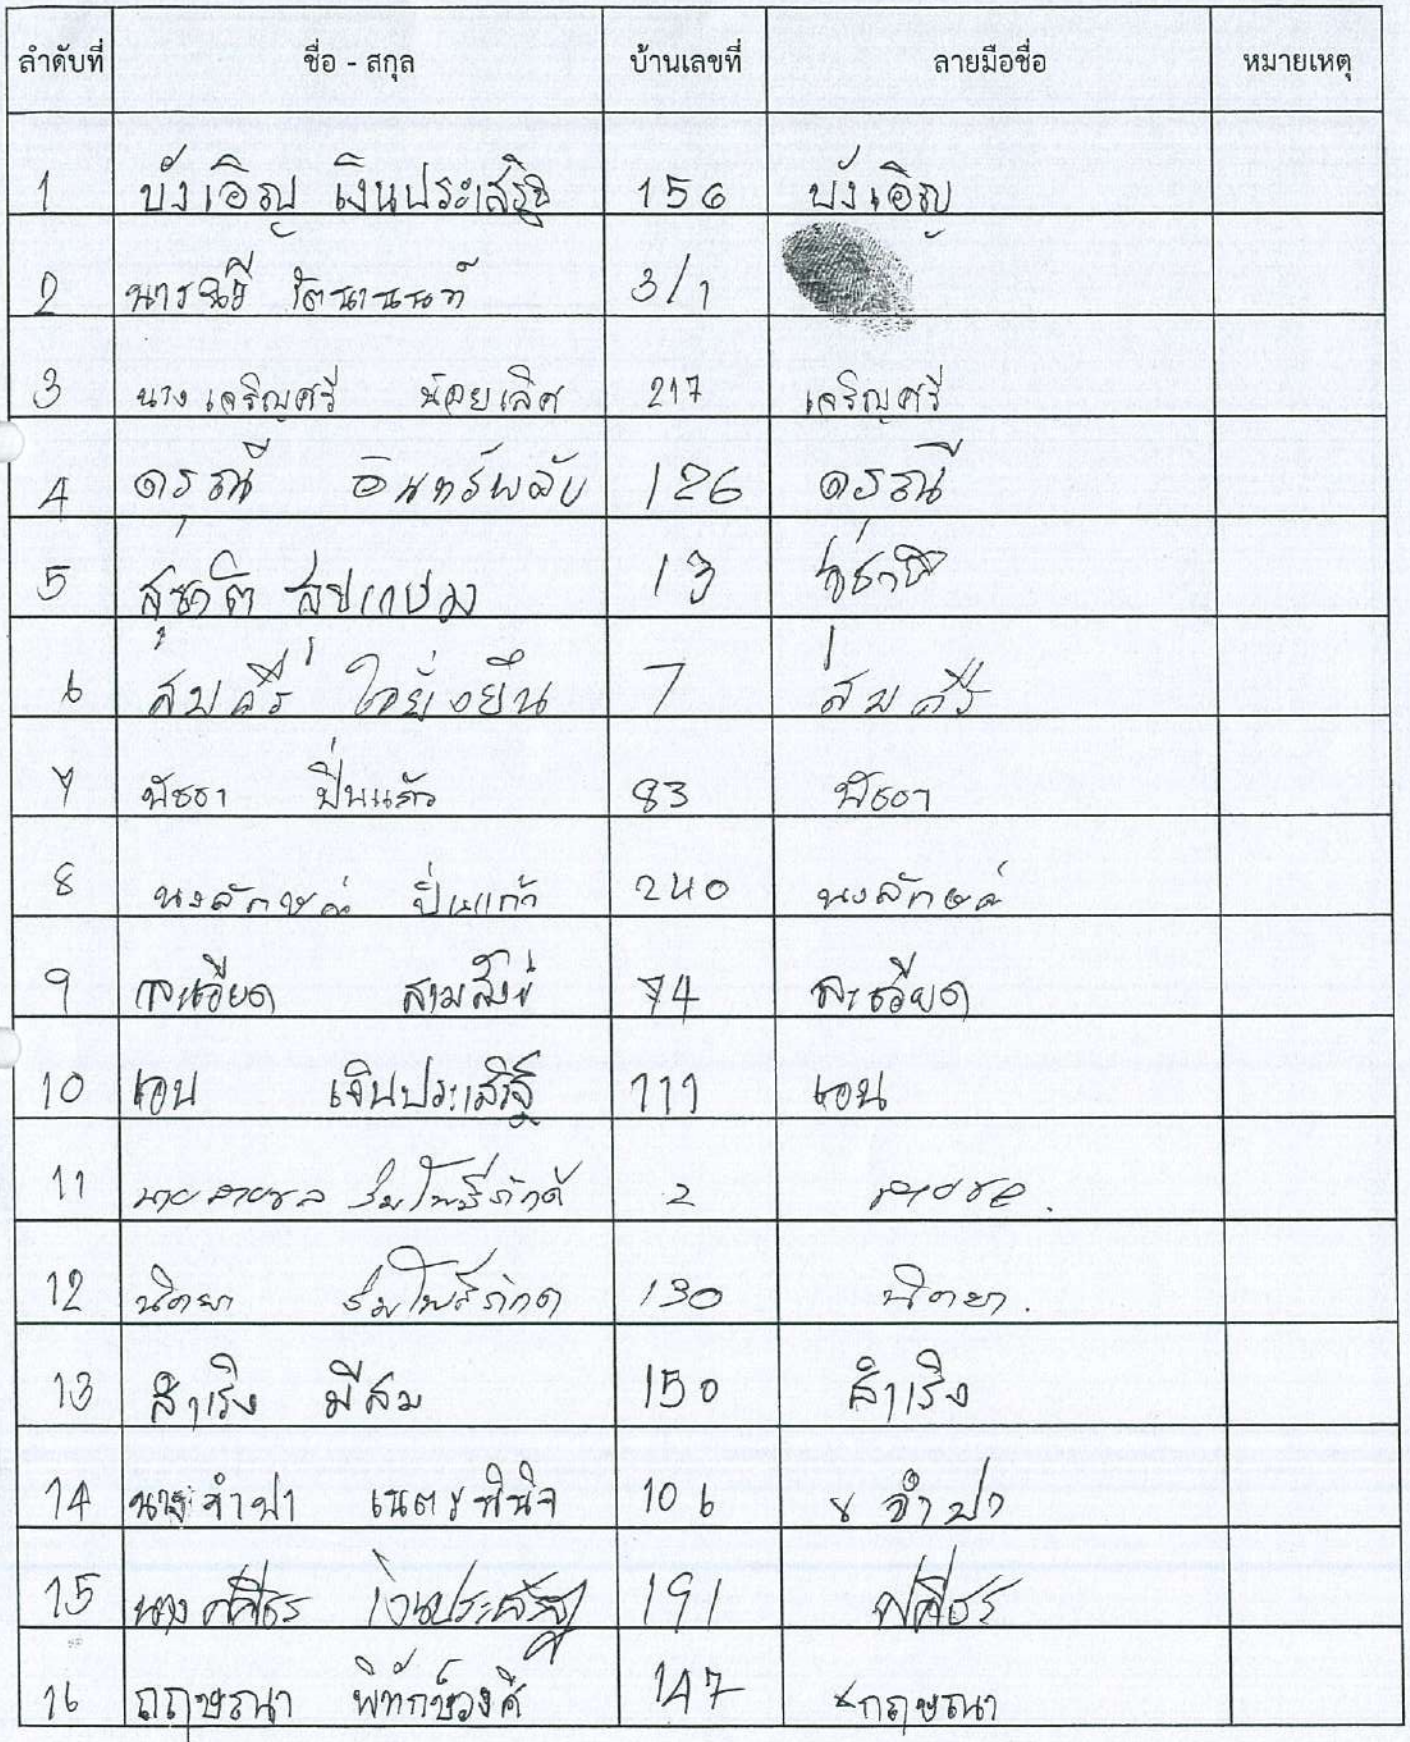 ลำดับที่ ชื่อ - สกุล บ้านเลขที่ ลายมือชื่อ หมายเหตุ
1 บังเอิญ เงินประเสริฐ 156 บังเอิญ
2 3/1
3 นางเจริญศรี น้อยเลิศ 217 เจริญศรี
4 ดรุณี อินทร์พลับ 126 ดรุณี
5 สุชาติ 13 สุชาติ
6 สมศรี ใจยั่งยืน 7 สมศรี
7 พัชชา ปิ่นแก้ว 83 พัชชา
8 นงลักษณ์ ปิ่นแก้ว 240 นงลักษณ์
9 ละเอียด สามสังข์ 74 ละเอียด
10 เอม เงินประเสริฐ 111 เอม
11 นายสายชล ร่มโพธิ์ภักดิ์ 2 สายชล
12 นิตยา ร่มโพธิ์ภักดิ์ 130 นิตยา
13 สำเริง มีสม 150 สำเริง
14 นางจำปา เนตรพินิจ 106 x จำปา
15 นางศศิธร เงินประเสริฐ 191 ศศิธร
16 กฤษณา พิทักษ์วงศ์ 147 x กฤษณา